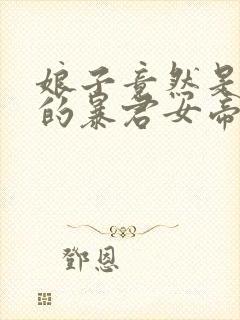 娘子竟然是
的暴君女帝
鄧恩